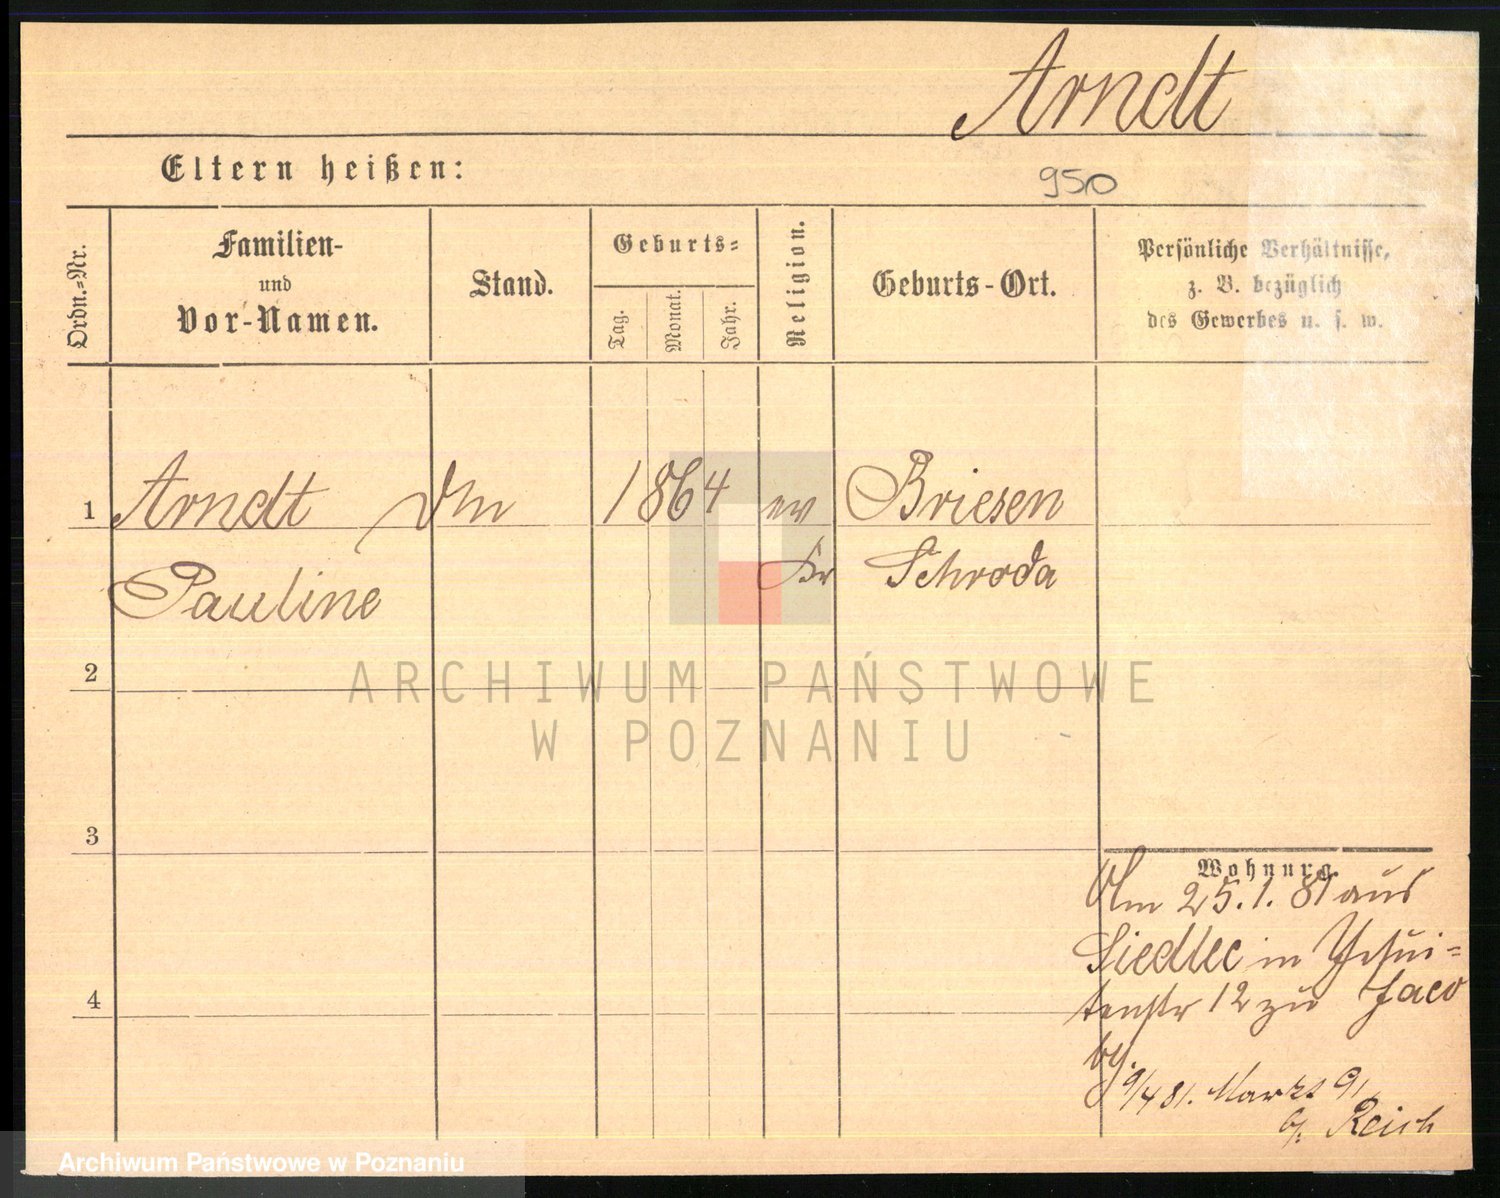 Arndt
Eltern heißen:
950
Ordn.=Nr.
Familien-
und
Vor-Namen.
Stand.
Geburts=
Tag.
Monat.
Jahr.
Religion.
Geburts-Ort.
Persönliche Verhältnisse,
z. B. bezüglich
des Gewerbes u. s. w.
1 Arndt 1864 ev Briesen
Pauline Kr Schroda
2
ARCHIWUM PAŃSTWOWE
W POZNANIU
3
Wohnung.
Am 25.1.81 aus
Siedlec in Jesui=
tenstr 12 zu Jaco
by.
9/4 81. Markt 91
b/. Reich
4
Archiwum Państwowe w Poznaniu